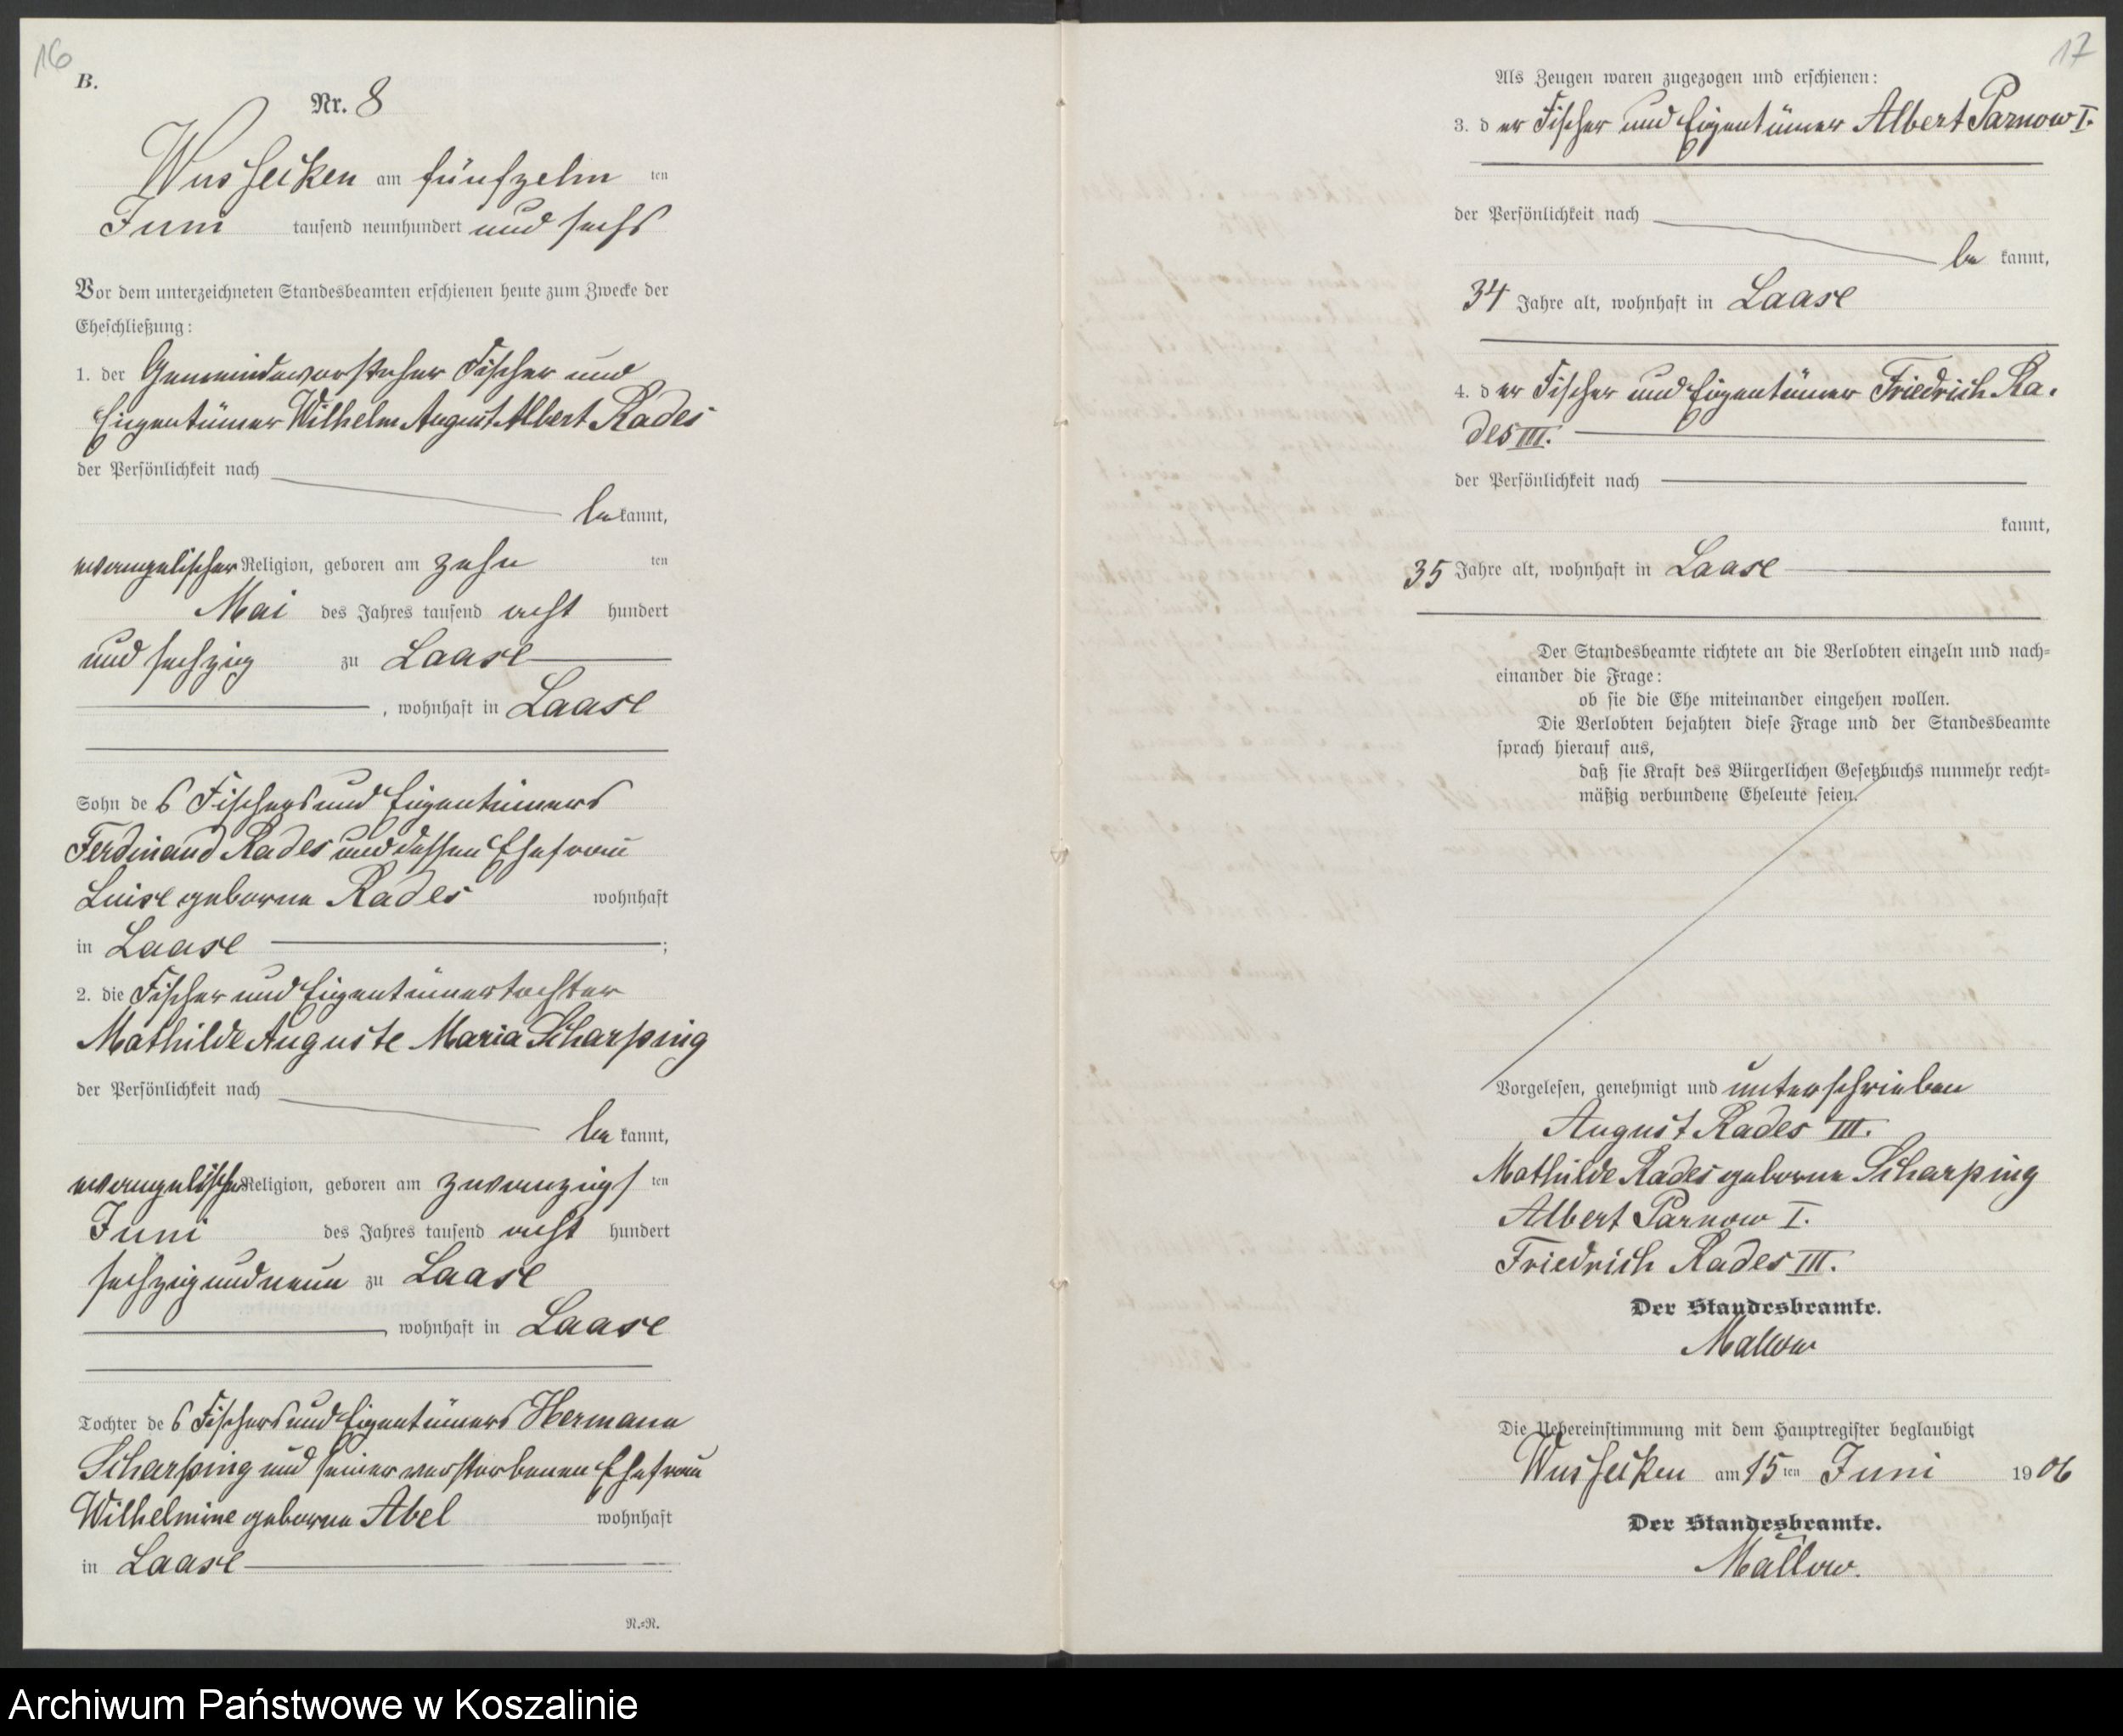 16
B.
Nr. 8
Wusseken am fünfzehn ten
Juni tausend neunhundert und sechs
Vor dem unterzeichneten Standesbeamten erschienen heute zum Zwecke der
Eheschließung:
1. der Gemeindevorsteher Fischer und
Eigentümer Wilhelm August Albert Rades
der Persönlichkeit nach
be kannt,
evangelischer Religion, geboren am zehn ten
Mai des Jahres tausend acht hundert
und sechzig zu Laase
, wohnhaft in Laase
Sohn des Fischers und Eigentümers
Ferdinand Rades und dessen Ehefrau
Luise geborne Rades wohnhaft
in Laase ;
2. die Fischer und Eigentümertochter
Mathilde Auguste Maria Scharping
der Persönlichkeit nach
be kannt,
evangelischer Religion, geboren am zwanzigs ten
Juni des Jahres tausend acht hundert
sechzig und neun zu Laase
, wohnhaft in Laase
Tochter des Fischers und Eigentümers Hermann
Scharping und seiner verstorbenen Ehefrau
Wilhelmine geborne Abel wohnhaft
in Laase
N.=N.
17
Als Zeugen waren zugezogen und erschienen:
3. der Fischer und Eigentümer Albert Parnow I.
der Persönlichkeit nach
be kannt,
34 Jahre alt, wohnhaft in Laase
4. der Fischer und Eigentümer Friedrich Ra-
des III.
der Persönlichkeit nach
kannt,
35 Jahre alt, wohnhaft in Laase
Der Standesbeamte richtete an die Verlobten einzeln und nach=
einander die Frage:
ob sie die Ehe miteinander eingehen wollen.
Die Verlobten bejahten diese Frage und der Standesbeamte
sprach hierauf aus,
daß sie Kraft des Bürgerlichen Gesetzbuchs nunmehr recht=
mäßig verbundene Eheleute seien.
Vorgelesen, genehmigt und unterschrieben
August Rades III.
Mathilde Rades geborne Scharping
Albert Parnow I.
Friedrich Rades III.
Der Standesbeamte.
Mallow
Die Uebereinstimmung mit dem Hauptregister beglaubigt
Wusseken am 15 ten Juni 1906
Der Standesbeamte.
Mallow.
Archiwum Państwowe w Koszalinie